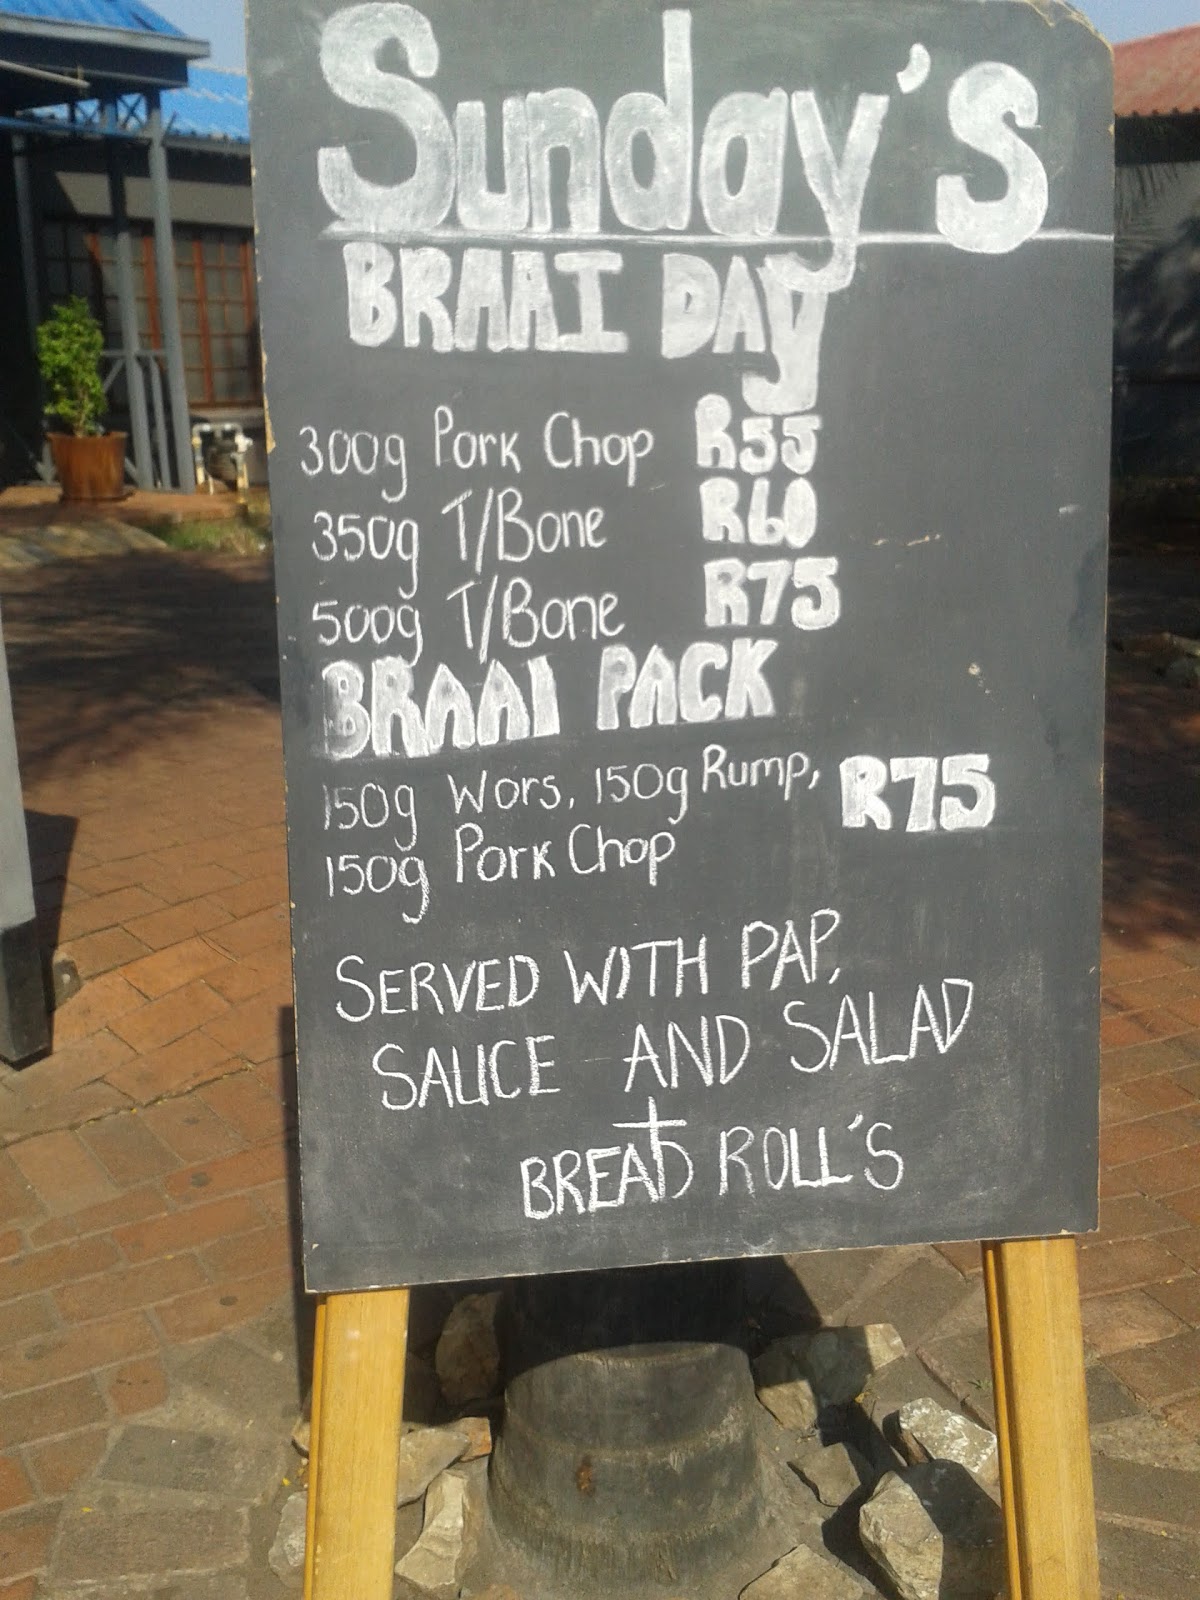 Sunday's
BRAAI DAY
300g Pork Chop R55
350g T/Bone R60
500g T/Bone R75
BRAAI PACK
150g Wors, 150g Rump, R75
150g Pork Chop
SERVED WITH PAP,
SAUCE AND SALAD
+
BREAD ROLL'S